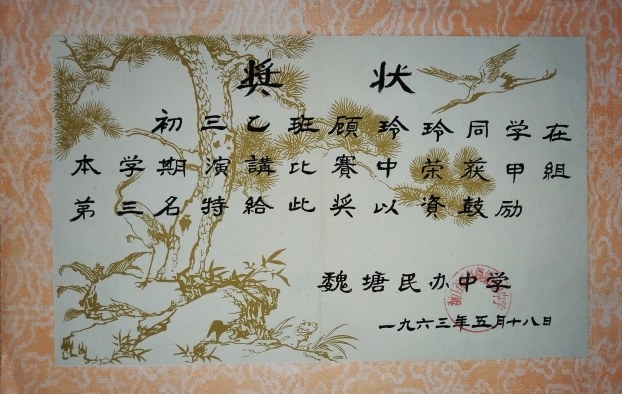 奖状
初三乙班顾玲玲同学在
本学期演講比賽中荣获甲組
第三名特給此奖以資鼓励
魏塘民办中学
一九六三年五月十八日